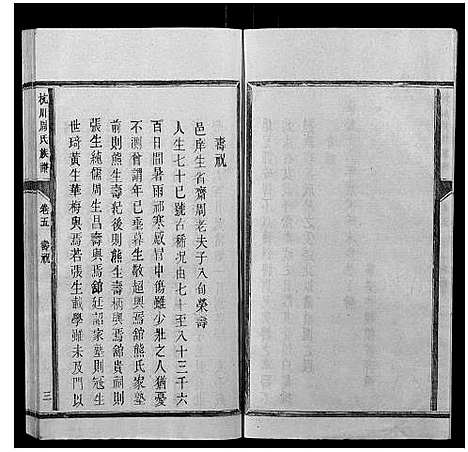 壽祝
邑庠生省齋周老夫子八旬榮壽
人生七十已號古稀況由七十至八十三千六
百日間暑雨祁寒感冒中傷雖少壯之人猶憂
不測曾謂年已垂暮生敬超興焉舘熊氏家塾
前則熊生壽紀後則熊生壽柄與焉舘貴祠則
張生純儒周生昌壽與焉舘廷詔家塾則冠生
世琦黃生華梅與焉若張生載學雖未及門以
杭川周氏族譜
卷五
壽祝
三